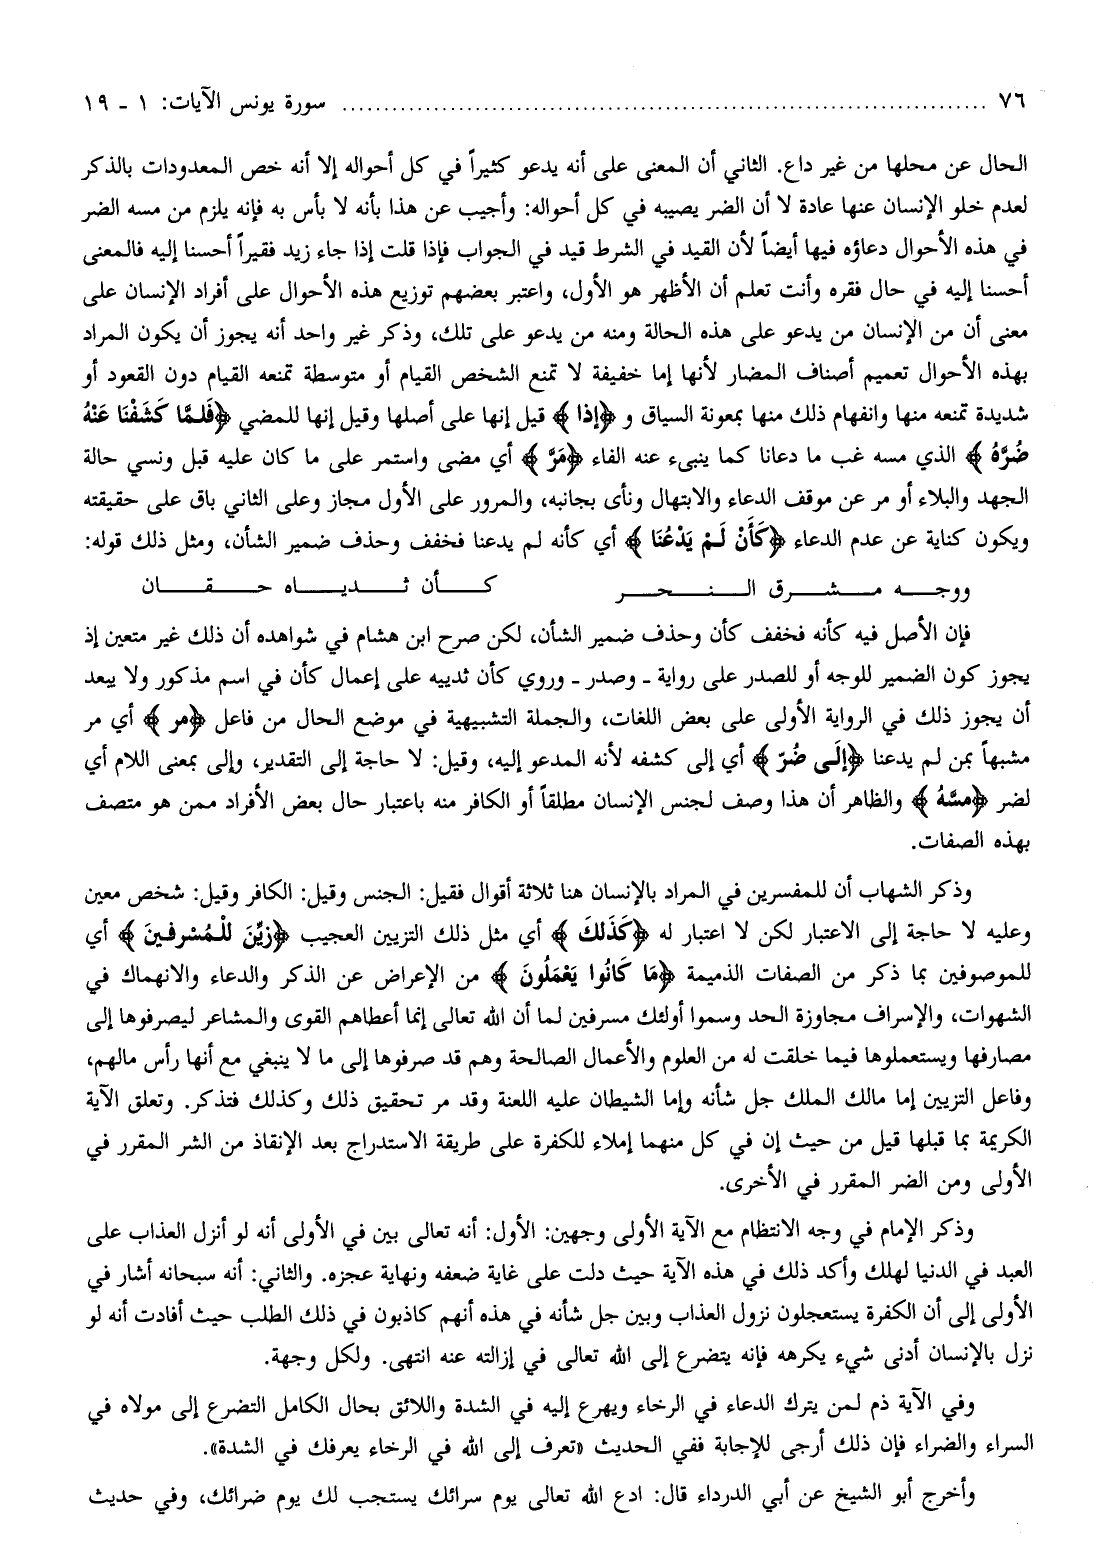 ٧٦ ........................................................................ سورة يونس الآيات: ١ - ١٩
الحال عن محلها من غير داع. الثاني أن المعنى على أنه يدعو كثيراً في كل أحواله إلا أنه خص المعدودات بالذكر
لعدم خلو الإنسان عنها عادة لا أن الضر يصيبه في كل أحواله: وأجيب عن هذا بأنه لا بأس به فإنه يلزم من مسه الضر
في هذه الأحوال دعاؤه فيها أيضاً لأن القيد في الشرط قيد في الجواب فإذا قلت إذا جاء زيد فقيراً أحسنا إليه فالمعنى
أحسنا إليه في حال فقره وأنت تعلم أن الأظهر هو الأول، واعتبر بعضهم توزيع هذه الأحوال على أفراد الإنسان على
معنى أن من الإنسان من يدعو على هذه الحالة ومنه من يدعو على تلك، وذكر غير واحد أنه يجوز أن يكون المراد
بهذه الأحوال تعميم أصناف المضار لأنها إما خفيفة لا تمنع الشخص القيام أو متوسطة تمنعه القيام دون القعود أو
شديدة تمنعه منها وانفهام ذلك منها بمعونة السياق و ﴿إذا﴾ قيل إنها على أصلها وقيل إنها للمضي ﴿فَلمَّا كَشَفْنَا عَنْهُ
ضُرَّهُ﴾ الذي مسه غب ما دعانا كما ينبىء عنه الفاء ﴿مَرَّ﴾ أي مضى واستمر على ما كان عليه قبل ونسي حالة
الجهد والبلاء أو مر عن موقف الدعاء والابتهال ونأى بجانبه، والمرور على الأول مجاز وعلى الثاني باق على حقيقته
ويكون كناية عن عدم الدعاء ﴿كَأَنْ لَمْ يَدْعُنَا﴾ أي كأنه لم يدعنا فخفف وحذف ضمير الشأن، ومثل ذلك قوله:
ووجه مشرق النحر كأن ثدياه حقان
فإن الأصل فيه كأنه فخفف كأن وحذف ضمير الشأن، لكن صرح ابن هشام في شواهده أن ذلك غير متعين إذ
يجوز كون الضمير للوجه أو للصدر على رواية ـ وصدر ـ وروي كأن ثدييه على إعمال كأن في اسم مذكور ولا يبعد
أن يجوز ذلك في الرواية الأولى على بعض اللغات، والجملة التشبيهية في موضع الحال من فاعل ﴿مر﴾ أي مر
مشبهاً بمن لم يدعنا ﴿إلَى ضُرّ﴾ أي إلى كشفه لأنه المدعو إليه، وقيل: لا حاجة إلى التقدير، وإلى بمعنى اللام أي
لضر ﴿مسَّهُ﴾ والظاهر أن هذا وصف لجنس الإنسان مطلقاً أو الكافر منه باعتبار حال بعض الأفراد ممن هو متصف
بهذه الصفات.
وذكر الشهاب أن للمفسرين في المراد بالإنسان هنا ثلاثة أقوال فقيل: الجنس وقيل: الكافر وقيل: شخص معين
وعليه لا حاجة إلى الاعتبار لكن لا اعتبار له ﴿كَذَلكَ﴾ أي مثل ذلك التزيين العجيب ﴿زيِّنَ للْمُسْرفينَ﴾ أي
للموصوفين بما ذكر من الصفات الذميمة ﴿مَا كَانُوا يَعْمَلُونَ﴾ من الإعراض عن الذكر والدعاء والانهماك في
الشهوات، والإسراف مجاوزة الحد وسموا أولئك مسرفين لما أن الله تعالى إنما أعطاهم القوى والمشاعر ليصرفوها إلى
مصارفها ويستعملوها فيما خلقت له من العلوم والأعمال الصالحة وهم قد صرفوها إلى ما لا ينبغي مع أنها رأس مالهم،
وفاعل التزيين إما مالك الملك جل شأنه وإما الشيطان عليه اللعنة وقد مر تحقيق ذلك وكذلك فتذكر. وتعلق الآية
الكريمة بما قبلها قيل من حيث إن في كل منهما إملاء للكفرة على طريقة الاستدراج بعد الإنقاذ من الشر المقرر في
الأولى ومن الضر المقرر في الأخرى.
وذكر الإمام في وجه الانتظام مع الآية الأولى وجهين: الأول: أنه تعالى بين في الأولى أنه لو أنزل العذاب على
العبد في الدنيا لهلك وأكد ذلك في هذه الآية حيث دلت على غاية ضعفه ونهاية عجزه. والثاني: أنه سبحانه أشار في
الأولى إلى أن الكفرة يستعجلون نزول العذاب وبين جل شأنه في هذه أنهم كاذبون في ذلك الطلب حيث أفادت أنه لو
نزل بالإنسان أدنى شيء يكرهه فإنه يتضرع إلى الله تعالى في إزالته عنه انتهى. ولكل وجهة.
وفي الآية ذم لمن يترك الدعاء في الرخاء ويهرع إليه في الشدة واللائق بحال الكامل التضرع إلى مولاه في
السراء والضراء فإن ذلك أرجى للإجابة ففي الحديث «تعرف إلى الله في الرخاء يعرفك في الشدة».
وأخرج أبو الشيخ عن أبي الدرداء قال: ادع الله تعالى يوم سرائك يستجب لك يوم ضرائك، وفي حديث